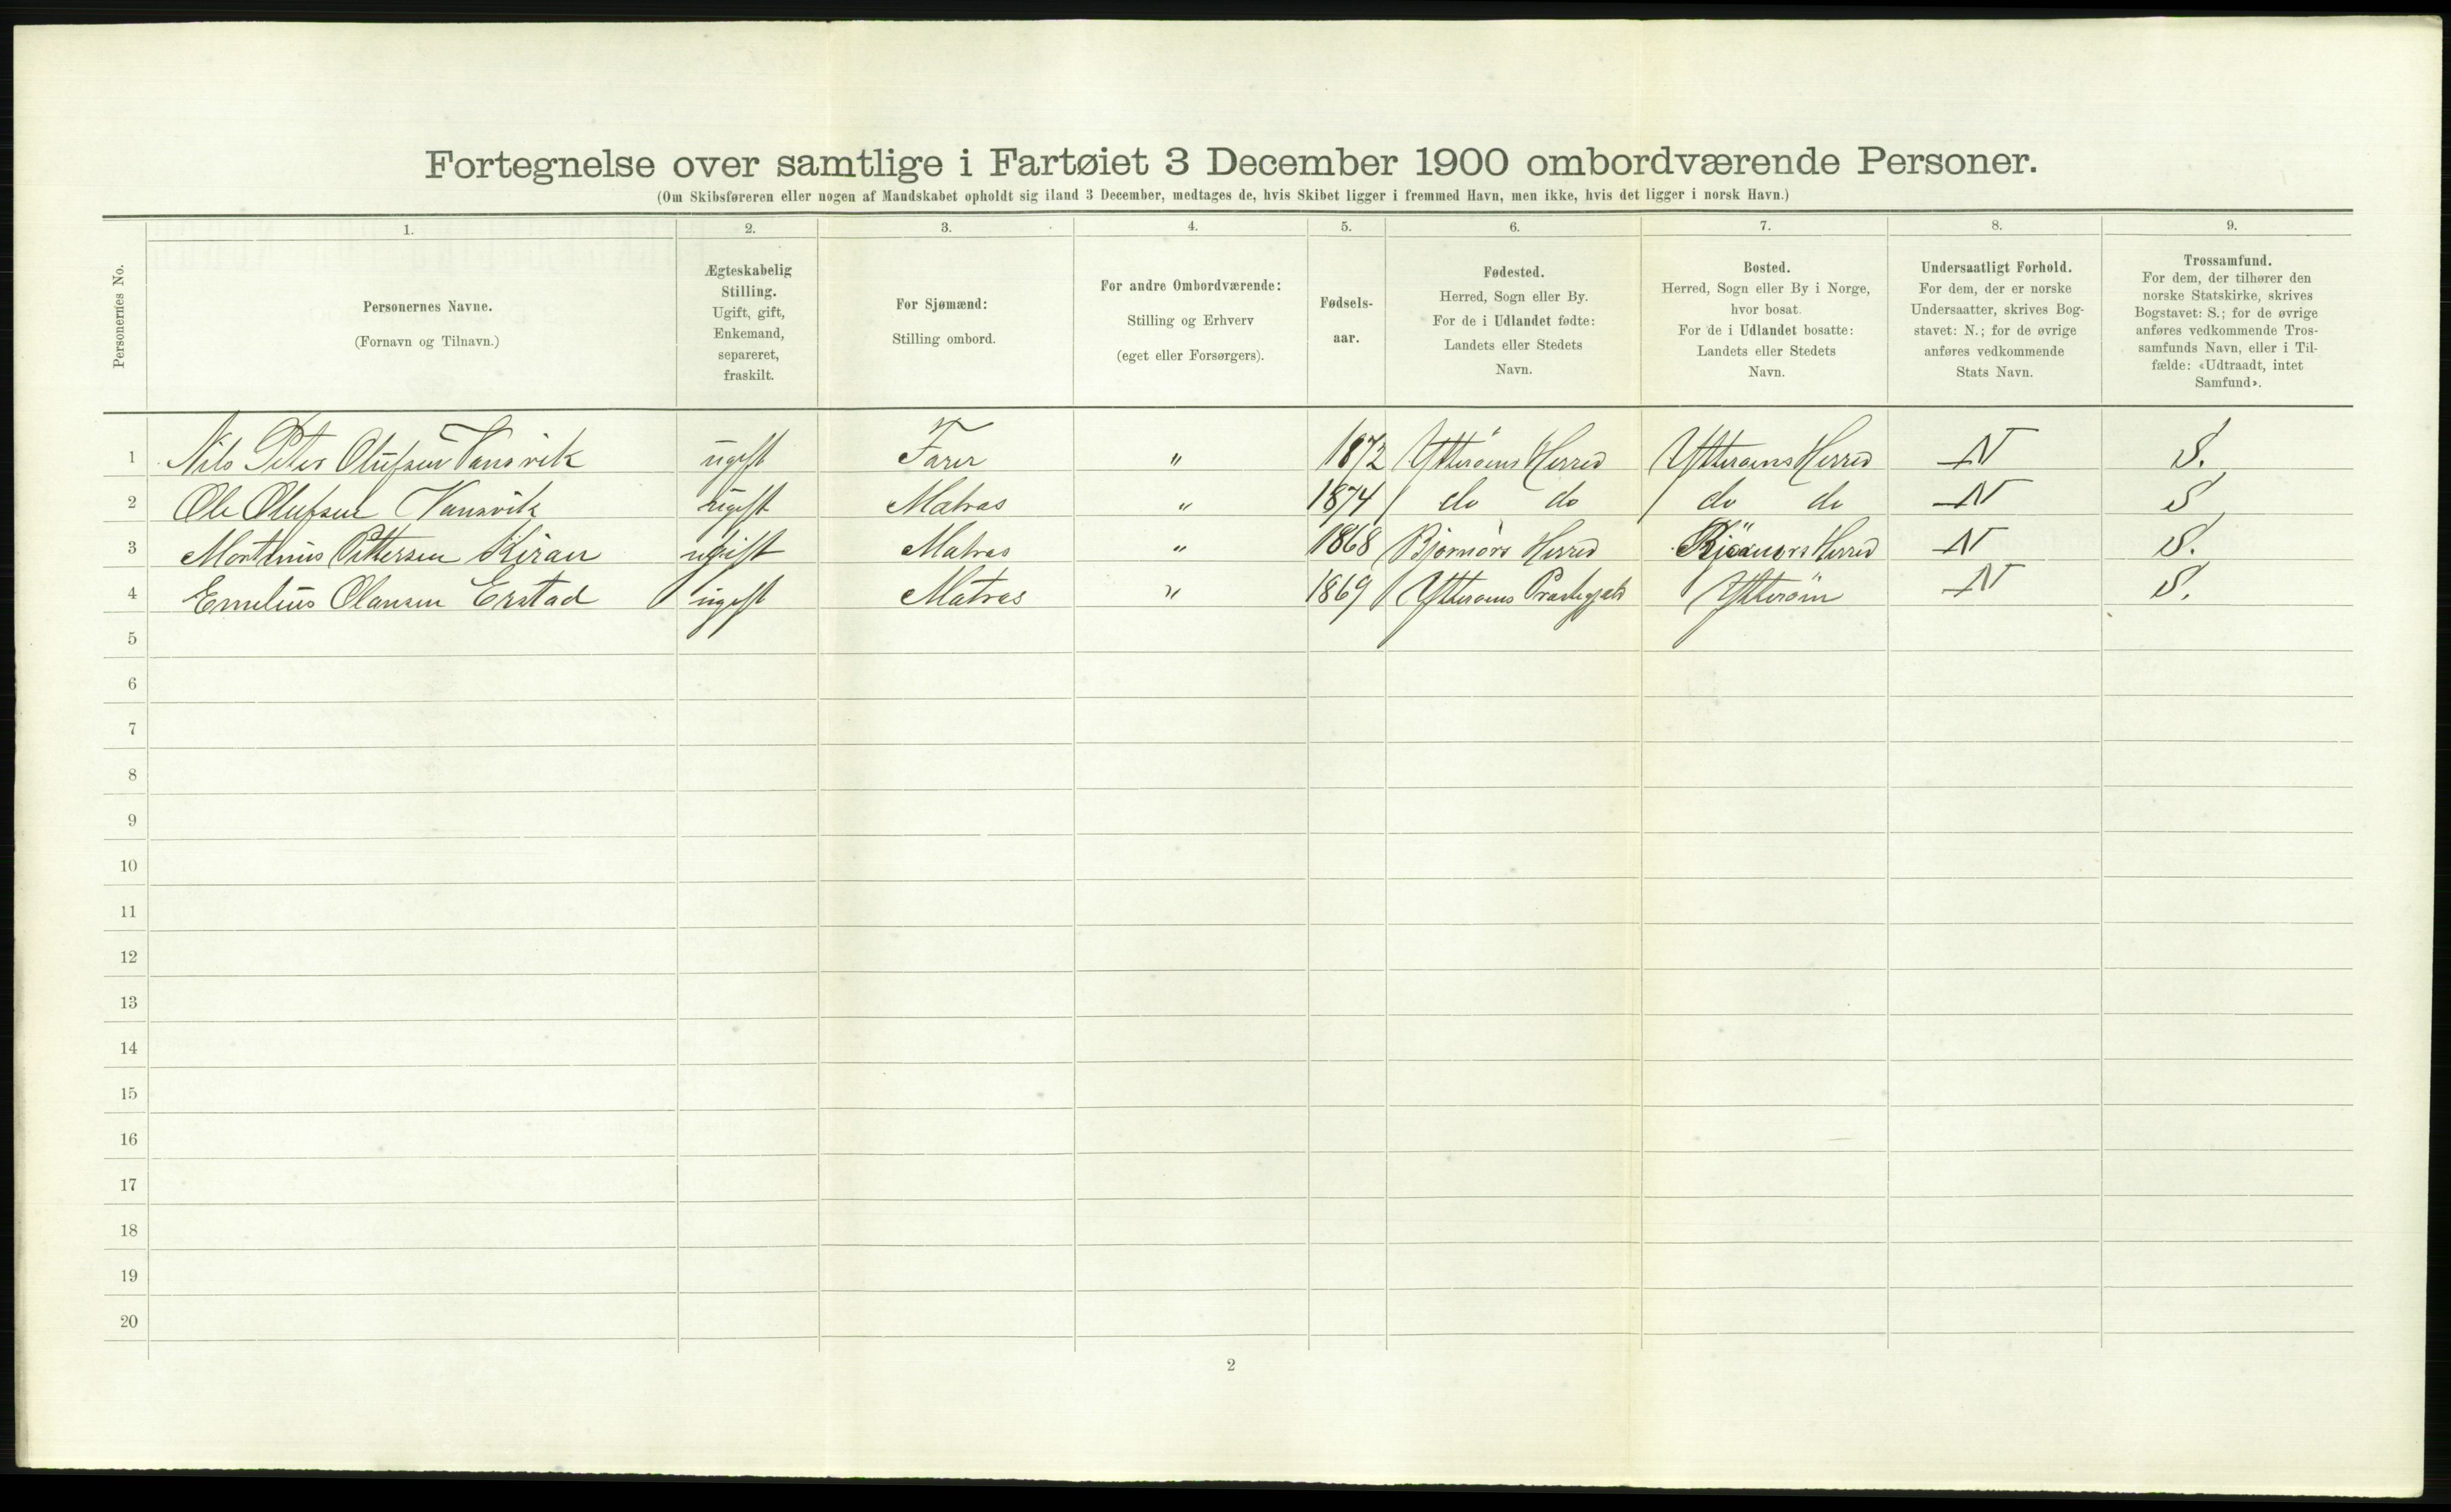 Fortegnelse over samtlige i Fartøiet 3 December 1900 ombordværende Personer.
(Om Skibsføreren eller nogen af Mandskabet opholdt sig iland 3 December, medtages de, hvis Skibet ligger i fremmed Havn, men ikke, hvis det ligger i norsk Havn.)
Personernes No.
1.
Personernes Navne.
(Fornavn og Tilnavn.)
2.
Ægteskabelig
Stilling.
Ugift, gift,
Enkemand,
separeret,
fraskilt.
3.
For Sjømænd:
Stilling ombord.
4.
For andre Ombordværende:
Stilling og Erhverv
(eget eller Forsørgers).
5.
Fødsels-
aar.
6.
Fødested.
Herred, Sogn eller By.
For de i Udlandet fødte:
Landets eller Stedets
Navn.
7.
Bosted.
Herred, Sogn eller By i Norge,
hvor bosat.
For de i Udlandet bosatte:
Landets eller Stedets
Navn.
8.
Undersaatligt Forhold.
For dem, der er norske
Undersaatter, skrives Bog-
stavet: N.; for de øvrige
anføres vedkommende
Stats Navn.
9.
Trossamfund.
For dem, der tilhører den
norske Statskirke, skrives
Bogstavet: S.; for de øvrige
anføres vedkommende Tros-
samfunds Navn, eller i Til-
fælde: «Udtraadt, intet
Samfund».
1 Nils Peter Olufsen Vansvik ugift Fører " 1872 Ytterøens Herred Ytterøens Herred N S.
2 Ole Olufsen Vansvik ugift Matros " 1874 do do do do N S
3 Mortinus Pettersen Kiran ugift Matros " 1868 Bjørnørs Herred Bjørnørs Herred N S.
4 Emelius Olausen Erstad ugift Matros " 1869 Ytterøens Præstegjeld Ytterøen N S.
5
6
7
8
9
10
11
12
13
14
15
16
17
18
19
20
2